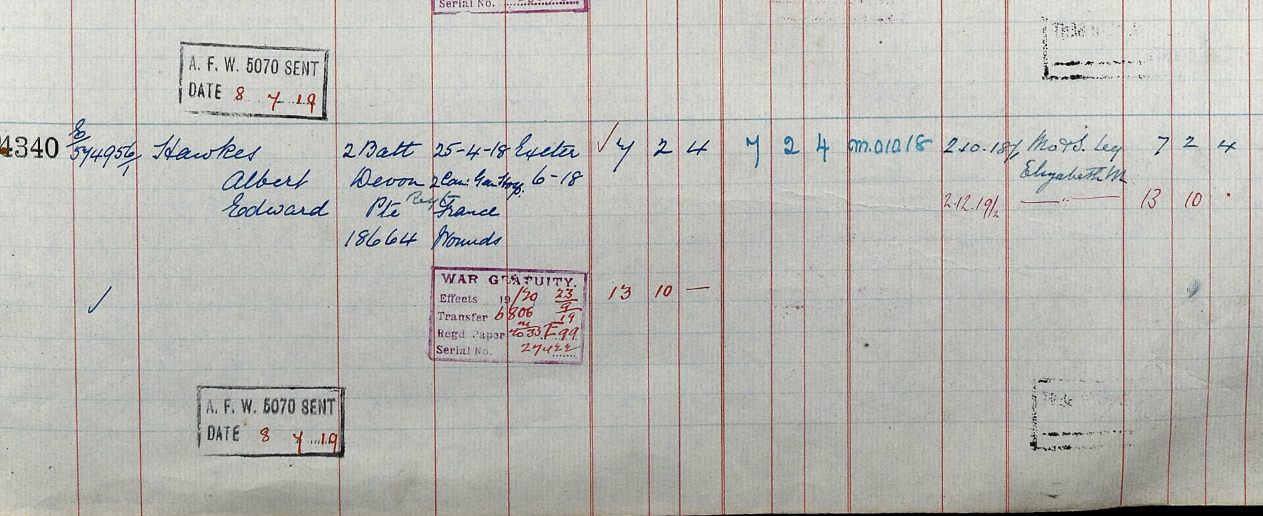 Serial No.
A. F. W. 5070 SENT
DATE 8 7 19
4340 E/574956/1 Hawkes 2 Batt 25-4-18 Exeter ✓ 7 2 4 7 2 4 2.10.18 Mo & S. Leg 7 2 4
Albert Devon 2 Can: Gen Hosp. 6-18 Elizabeth M
Edward Pte Regt France 2.12.19 13 10
18664 Wounds
WAR GRATUITY.
Effects 19/20 23 13 10 —
Transfer 6806 9
Regd Paper 19
Serial No.
A. F. W. 5070 SENT
DATE 8 7 19